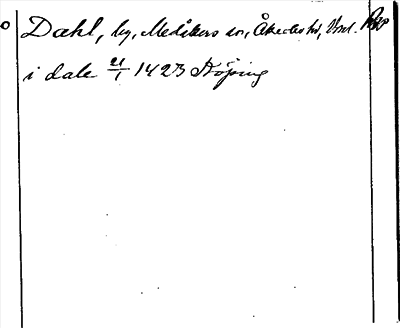 Dahl, by, Medåkers sn, Åkerbo hd, Vml.
i dale 21/1 1423 Köping